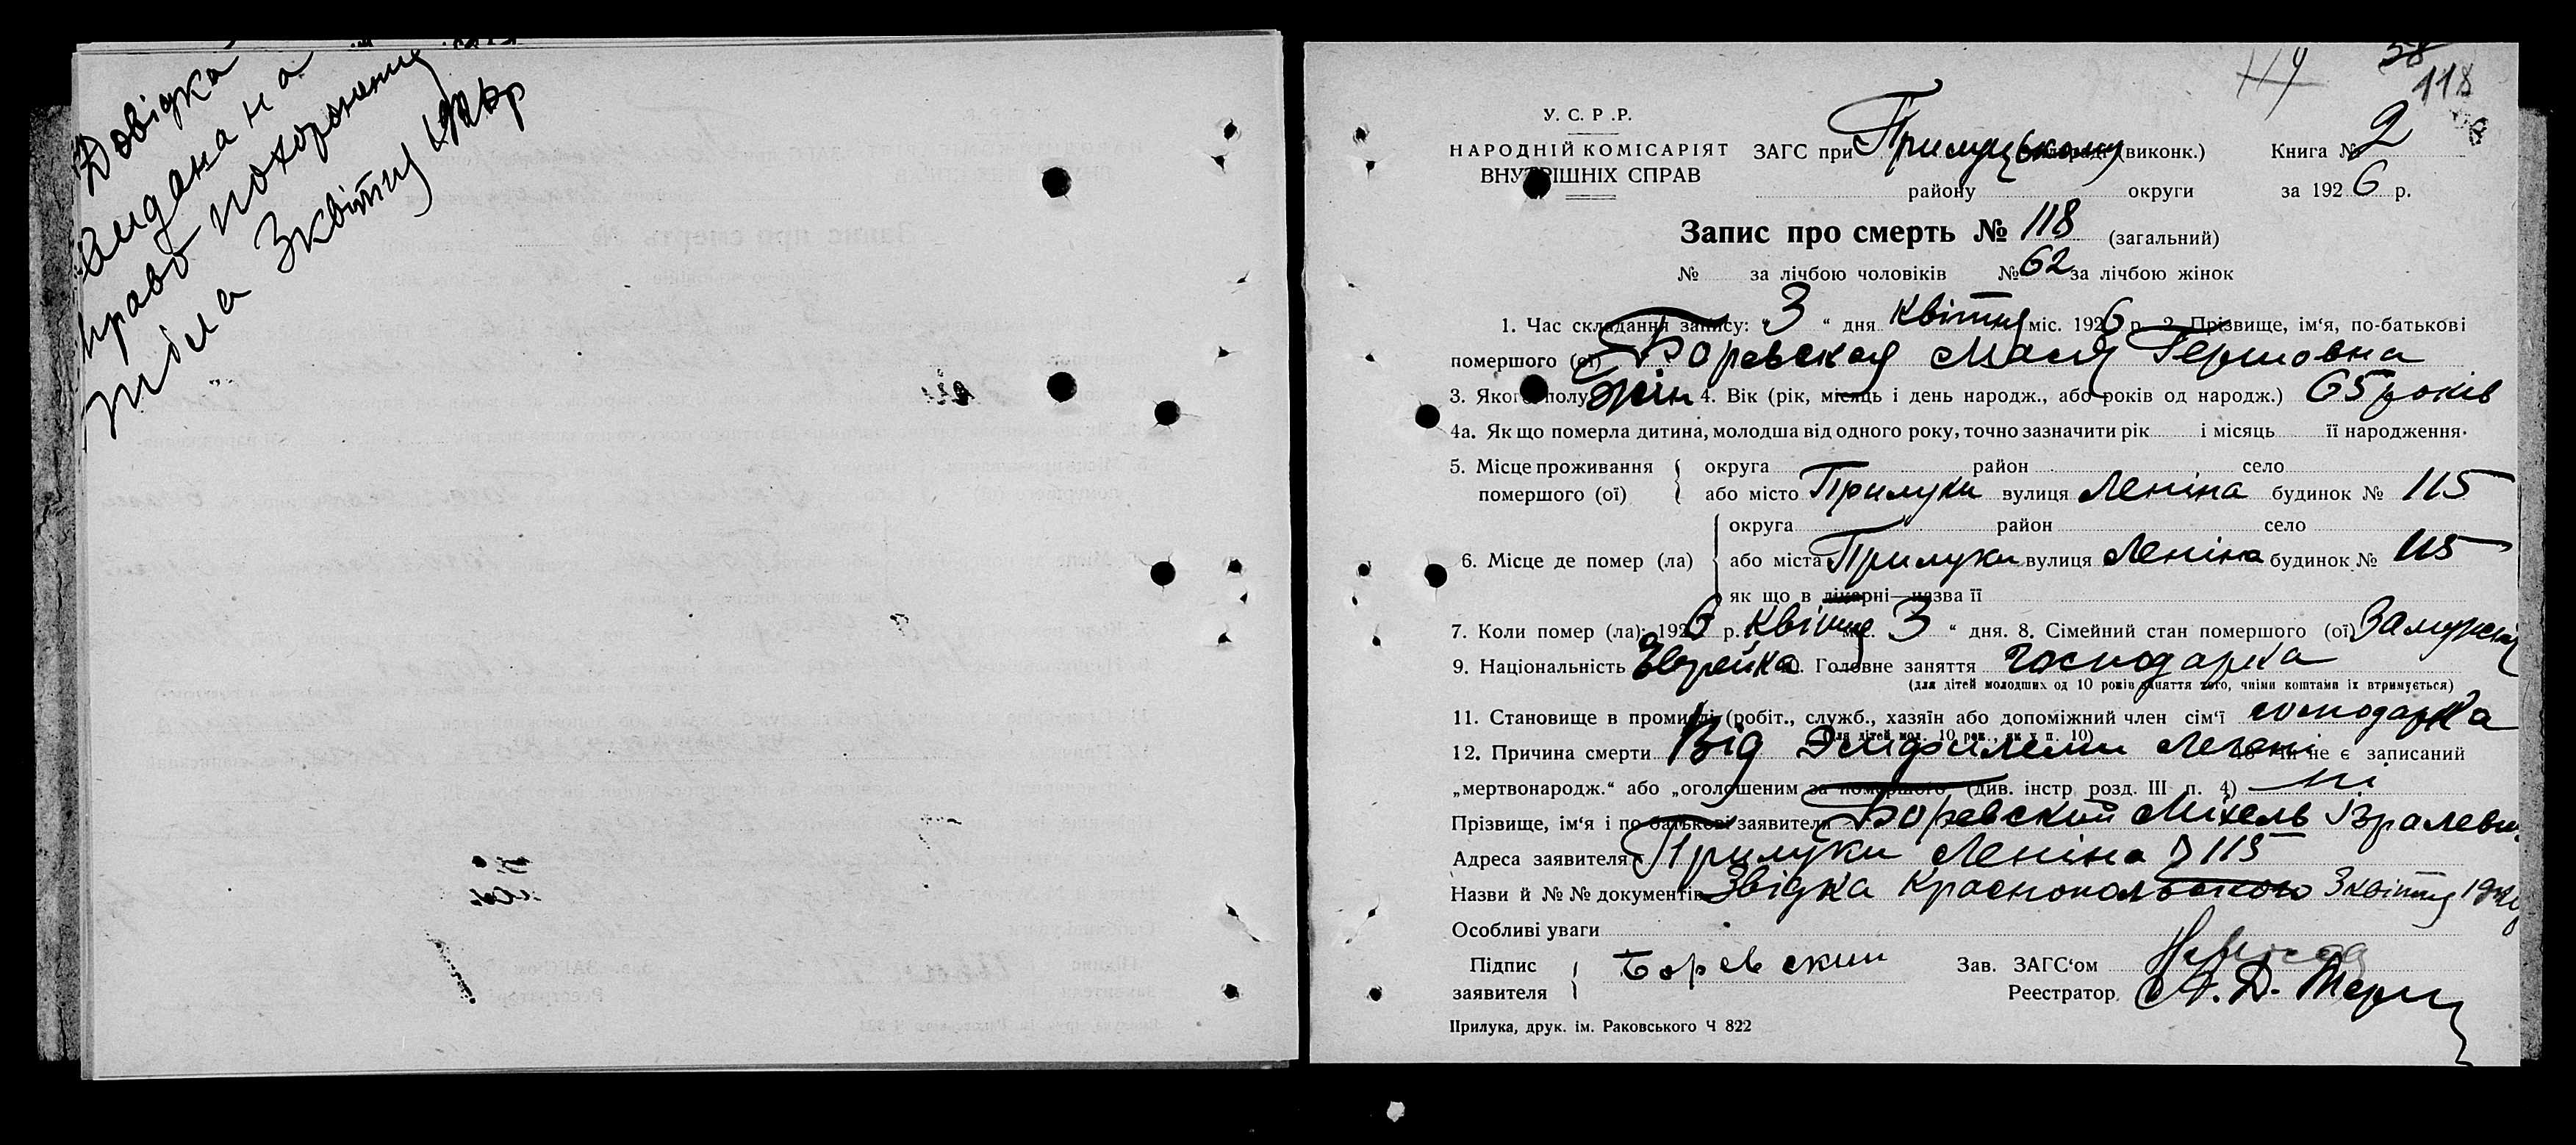 Довідка
видана на
право похорону
тіла 3 квітня 1926 р
118
У. С. Р. Р.
НАРОДНІЙ КОМІСАРІЯТ
ВНУТРІШНІХ СПРАВ
ЗАГС при Прилуцькому (виконк.) Книга № 2
району округи за 1926 р.
Запис про смерть № 118 (загальний)
№ за лічбою чоловіків № 62 за лічбою жінок
1. Час складання запису: „ 3 “ дня квітня міс. 1926 р. 2. Прізвище, ім‘я, по-батькові
помершого (ої) Боревская Мася Гершовна
3. Якого полу жін 4. Вік (рік, місяць і день народж., або років од народж.) 65 років
4а. Як що померла дитина, молодша від одного року, точно зазначити рік і місяць її народження.
5. Місце проживання помершого (ої) { округа район село
або місто Прилуки вулиця Леніна будинок № 115
6. Місце де помер (ла) { округа район село
або міста Прилуки вулиця Леніна будинок № 115
як що в лікарні—назва її
7. Коли помер (ла): 1926 р. квітня 3 “ дня. 8. Сімейний стан помершого (ої) Замужня
9. Національність Єврейка 10. Головне заняття господарка
(для дітей молодших од 10 років заняття того, чиїми коштами їх втримується)
11. Становище в промислі (робіт., служб., хазяїн або допоміжний член сім‘ї господарка
(для дітей мол. 10 рок., як у п. 10)
12. Причина смерти Від Эмфилеми легені чи не є записаний
„мертвонародж.“ або „оголошеним за помершого“ (див. інстр розд. III п. 4) ні
Прізвище, ім‘я і по-батькові заявителя Боревский Міхель Ізралеви
Адреса заявителя Прилуки Леніна 115
Назви й № № документів Звідка Краснопольського 3 квітня 1926
Особливі уваги
Підпис заявителя } Боревский Зав. ЗАГС‘ом
Реєстратор А. Д.
Прилука, друк. ім. Раковського Ч 822